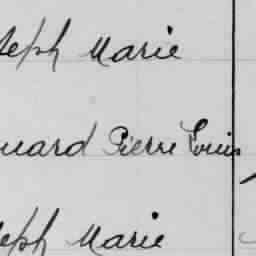 seph Marie
ouard Pierre Louis
seph Marie